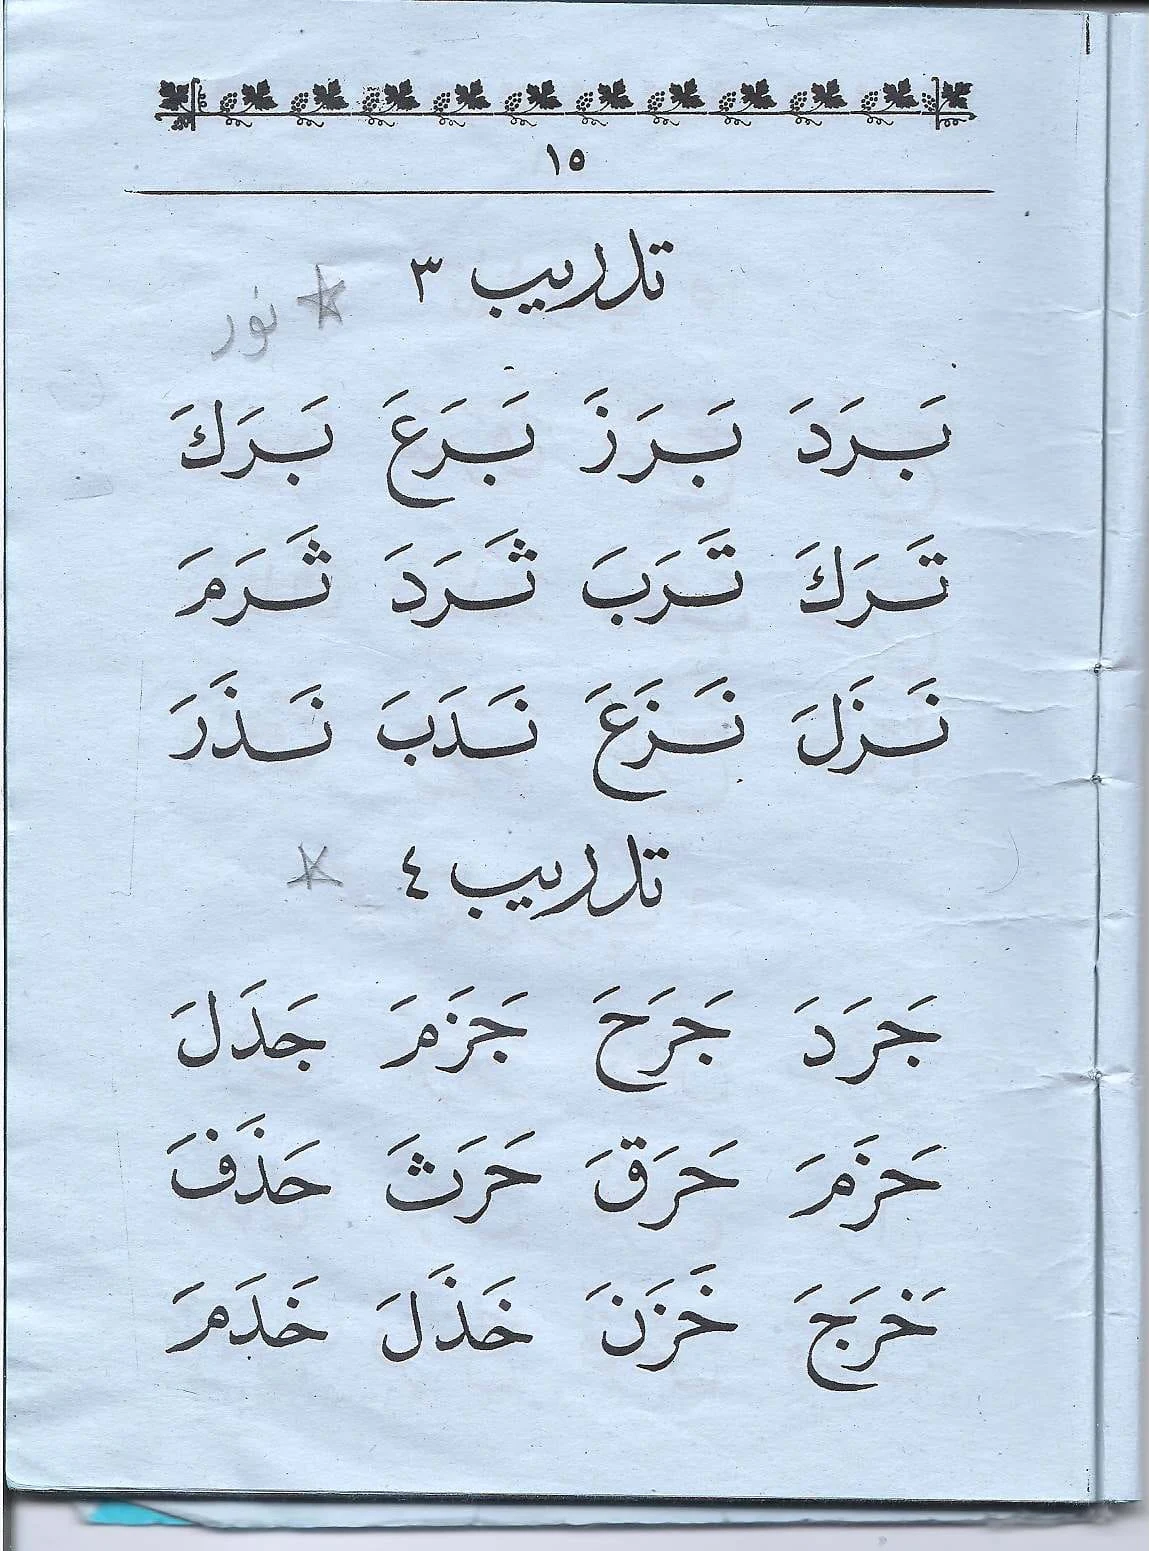 ١٥
تدريب ٣
نور
بَرَدَ بَرَزَ بَرَعَ بَرَكَ
تَرَكَ تَرَبَ ثَرَدَ ثَرَمَ
نَزَلَ نَزَعَ نَدَبَ نَذَرَ
تدريب ٤
جَرَدَ جَرَحَ جَزَمَ جَدَلَ
حَزَمَ حَرَقَ حَرَثَ حَذَفَ
خَرَجَ خَزَنَ خَذَلَ خَدَمَ